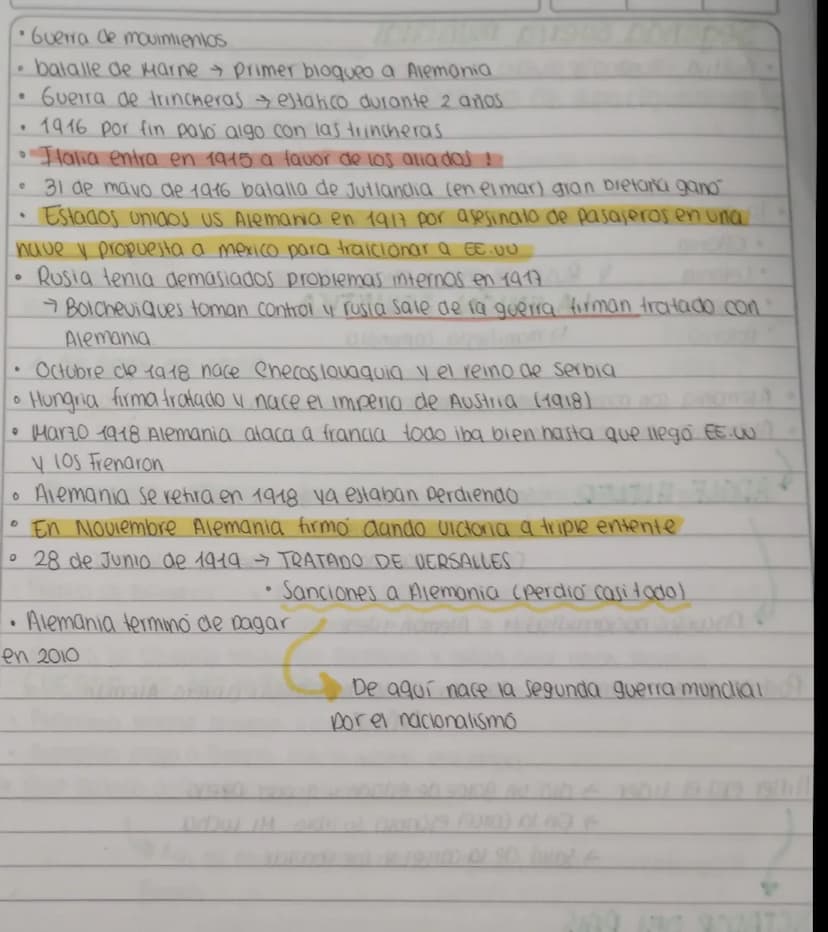 • Guerra de movimientos
• batalle de Marne → primer bloqueo a Alemania
• Guerra de trincheras → estatico durante 2 años
• 1916 por fin paso algo con las trincheras
• Italia entra en 1915 a favor de los aliados !
• 31 de mayo de 1916 batalla de Jutlandia (en el mar) gran bretaña ganó
• Estados unidos vs Alemania en 1917 por asesinato de pasajeros en una
nave y propuesta a mexico para traicionar a EE.UU
• Rusia tenia demasiados problemas internos en 1917
→ Bolcheviques toman control y rusia sale de la guerra firman tratado con
Alemania
• Octubre de 1918 nace Checoslovaquia y el reino de Serbia
• Hungria firma tratado y nace el imperio de Austria (1918)
• Marzo 1918 Alemania ataca a francia todo iba bien hasta que llegó EE.UU
y los Frenaron
• Alemania se retira en 1918 ya estaban perdiendo
• En Noviembre Alemania firmó dando victoria a triple entente
• 28 de Junio de 1919 → TRATADO DE VERSALLES
• Sanciones a Alemania (perdió casi todo)
• Alemania terminó de pagar
en 2010
De aquí nace la segunda guerra mundial
por el nacionalismo